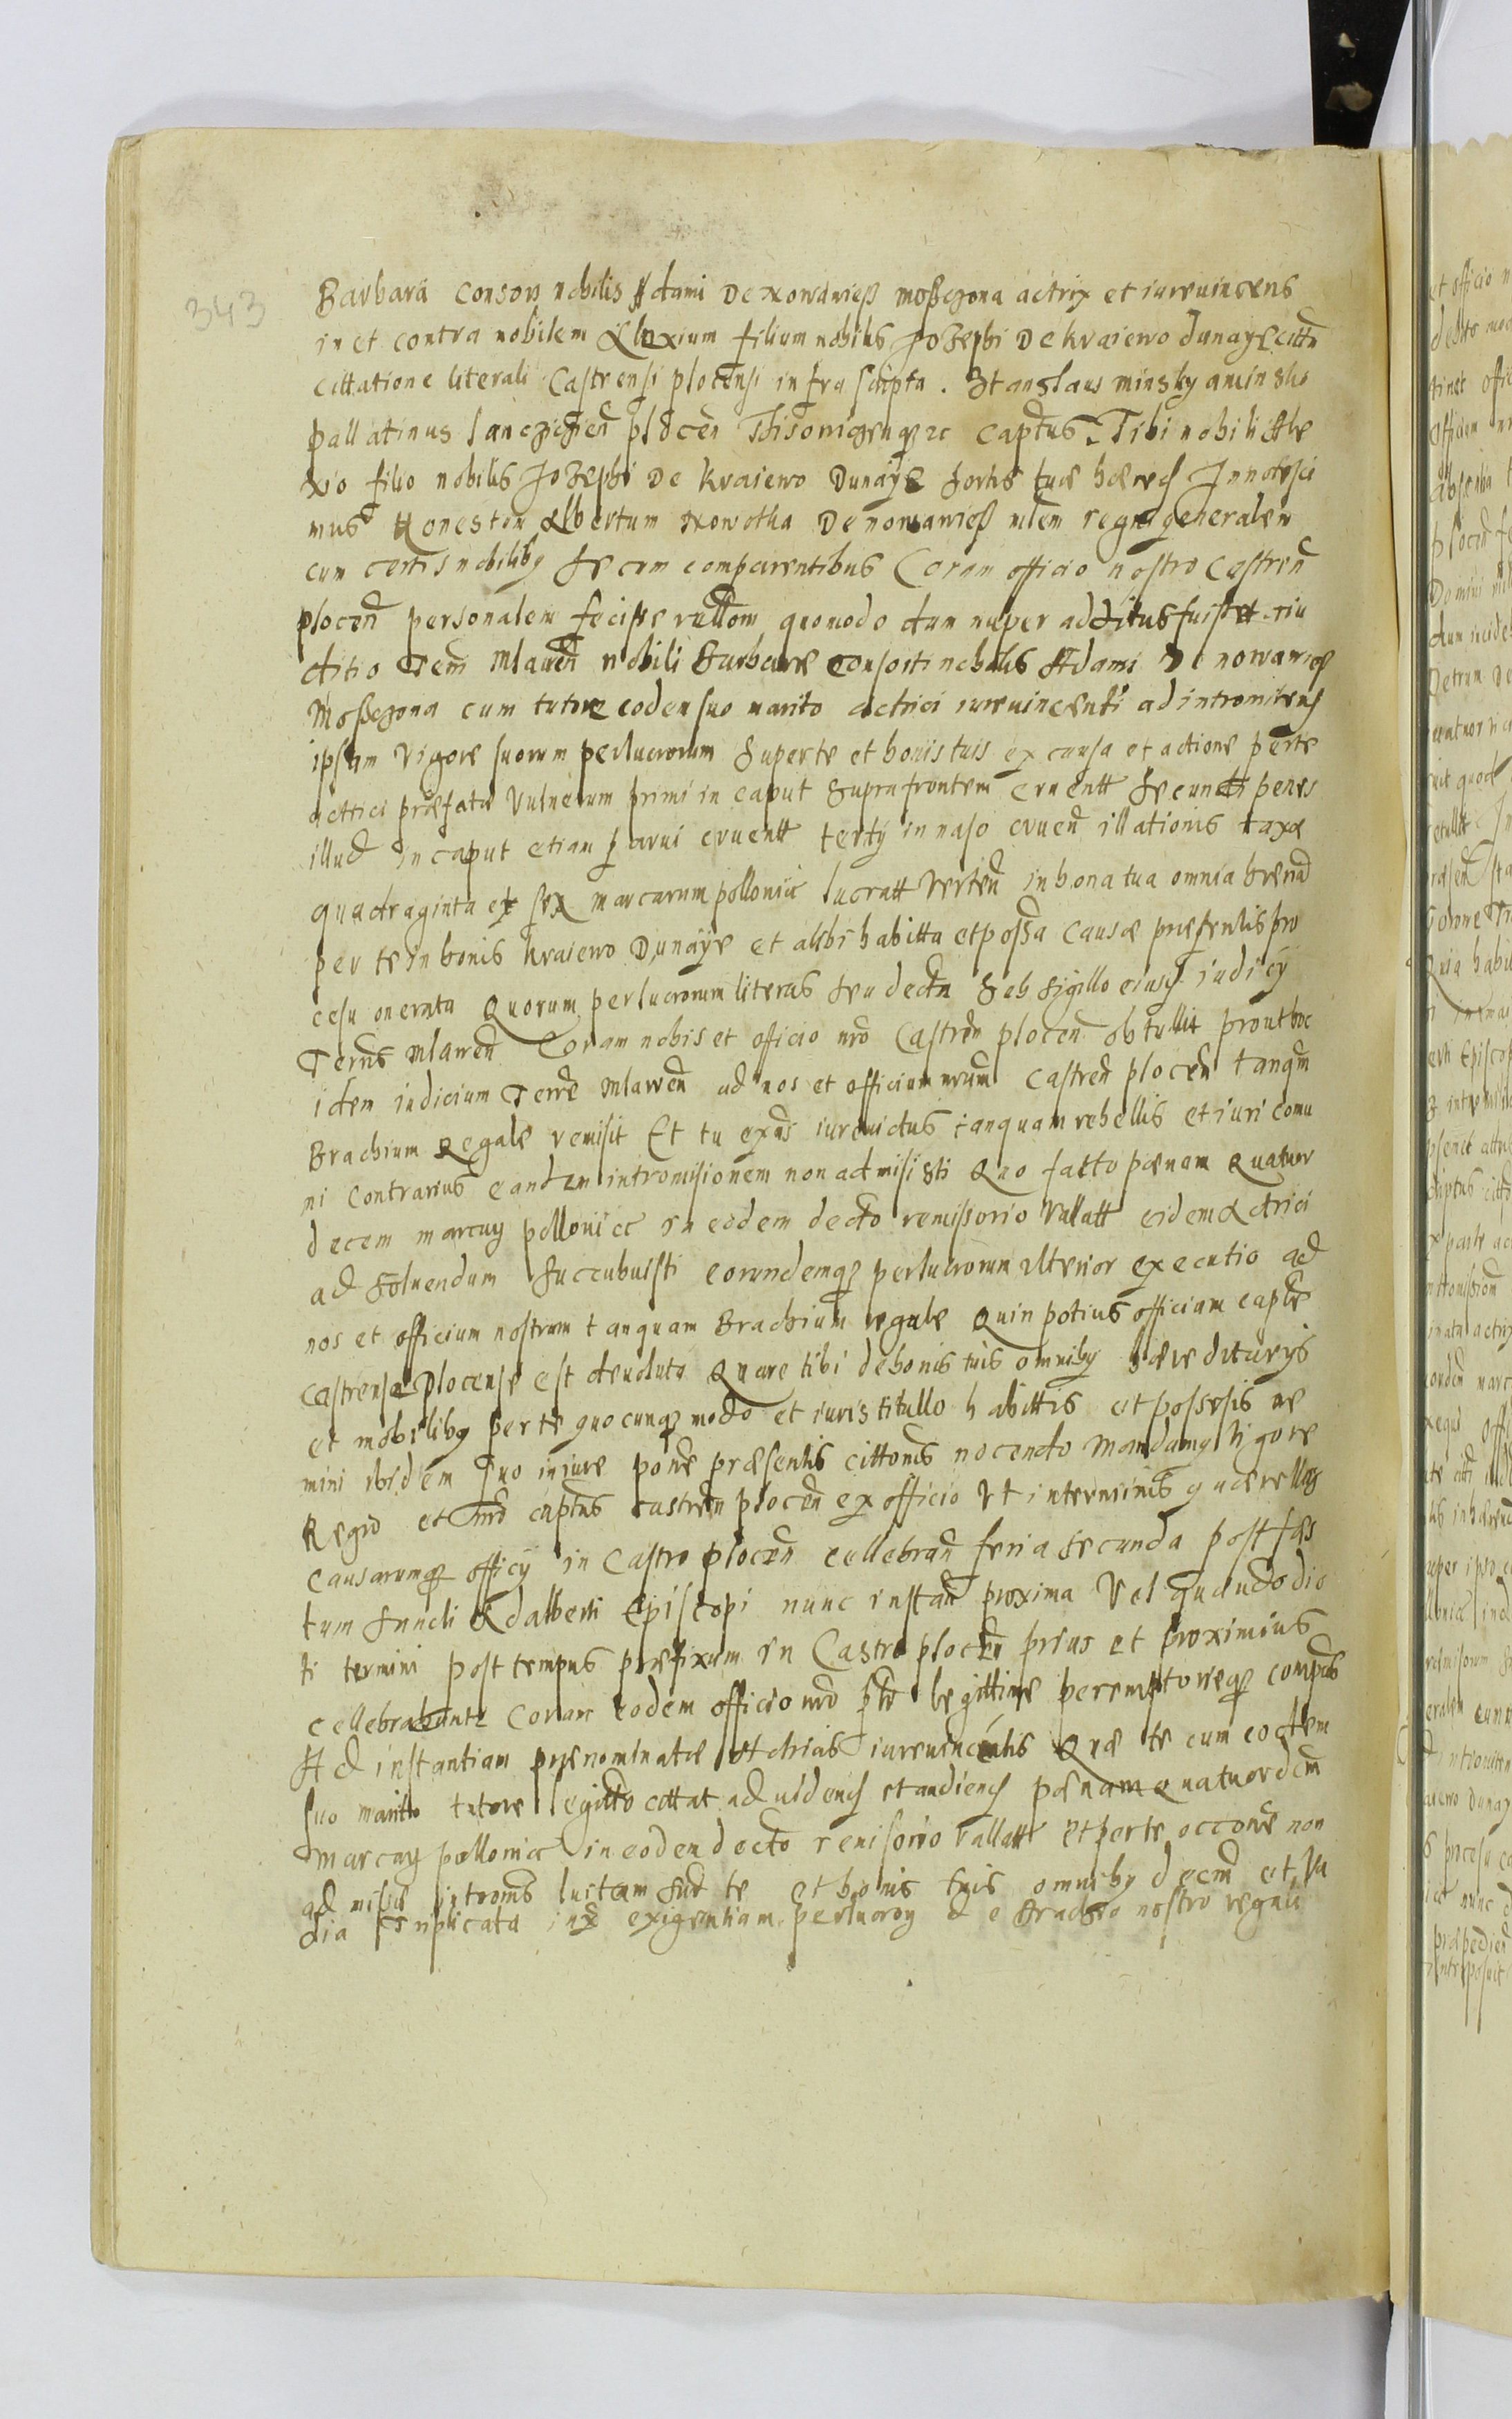 343
Barbara consors nobilis Adami De nowawieß moßczona actrix et iureuincens
in et contra nobilem Alexium filium nobilis Jozephi De kraiewo dunaye cittn
cittatione literali Castrensi plocensi infra scripta. Stanslaus minsky a minsko
pallatinus lancziczien plocen captus. Tibi nobili Ale
xio filio nobilis Jozephi De kraiewo Dunaye sortis tuæ hæred Innotesci
mus honestem Albertum nowotha De nowawieß mlem regni generalem
cum certis nobiliby secum comparentibus Coram officio nostro Castren
plocen personalem fecisse rellom quomodo dum nuper additus fuisset a iu
ditio Terri Mlawen nobili Barbaræ consorti nobilis Adami De nowawieß
Moßczona cum tutore eodem suo marito actrici iureuincenti ad intromitend
ipsam vigore suorum perlucrorum super te et bonis tuis ex causa et actione per te
actrici præfatæ vulnerum primi in caput supra frontem cruentt secundi penes
illud in caput etiam parui cruentt tertÿ in naso cruen illationis taxæ
quadraginta et sex marcarum pollonic lucratt verten in bona tua omnia hæred
per te in bonis kraiewo Dunaÿe et alibi habitta et possa causæ præsentis pro
cesu onerata Quorum perlucrorum literas seu dectn sub sigillo eiusd iudicÿ
Terris Mlawen Coram nobis et officio nro Castren plocen obtullit prout hoc
idem iudicium Terre Mlawen ad nos et officium nrum castren plocen tanqm
Brachium Regale remisit Et tu exns iurevictus tanquam rebellis et iuri comu
ni contrarius eandem intromisionem non admisisti Quo facto pænam Quatuor
decem marcay pollonicc in eodem decto remissorio Vallatt eidem Actrici
ad soluendum succubuisti eorundemq perlucrorum ulterior executio ad
nos et officium nostrum tanquam Brachium regale Quin potius officiam capte
castrense plocense est deuoluta Quare tibi de bonis tuis omniby hæreditarÿs
et mobiliby per te quocunq modo et iuris titullo habittis et possesis ne
mini ibidem suo in iure pone præsentis cittonis nocendo Mandamy Vigore
Regio et nro captus castren plocen ex officio Vt in terminis quærellas
causarumq officÿ in Castro plocen cellebran feria secunda post fes
tum sancti Adalberti Episcopi nunc instan proxima Vel quando dic
ti termini post tempus præfixum in Castro plocen prius et proximius
cellebrabuntr Coram eodem officio nro legittime peremptorieq compas
Ad instantiam prænominatæ Actricis iureuincentis Quæ te cum eodem
suo maritto tutore legitto cittat ad uidend et audiend pænam Quatuordcm
marcay pollonicc in eodem decto remisorio vallatt et per te occone non
ad misse intromis luitam te et bonis tuis omniby decm et va
dia triplicata exigentiam perlucroy de Brachio nostro regali